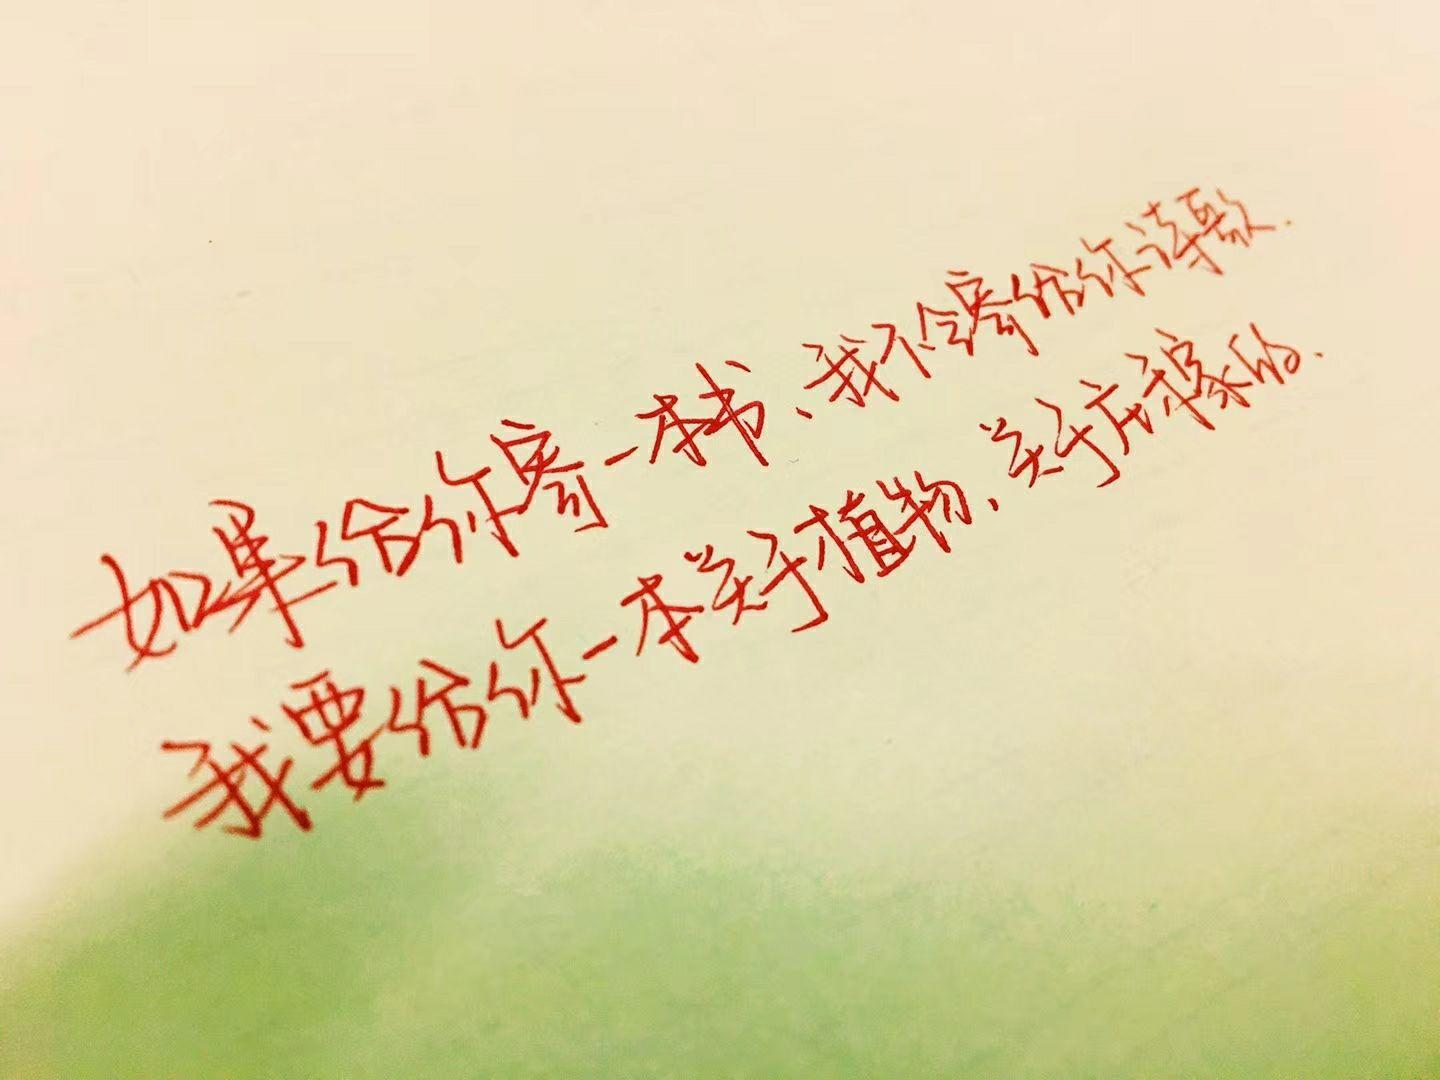 如果给你寄一本书、我不会寄给你诗歌.
我要给你一本关于植物、关于庄稼的.